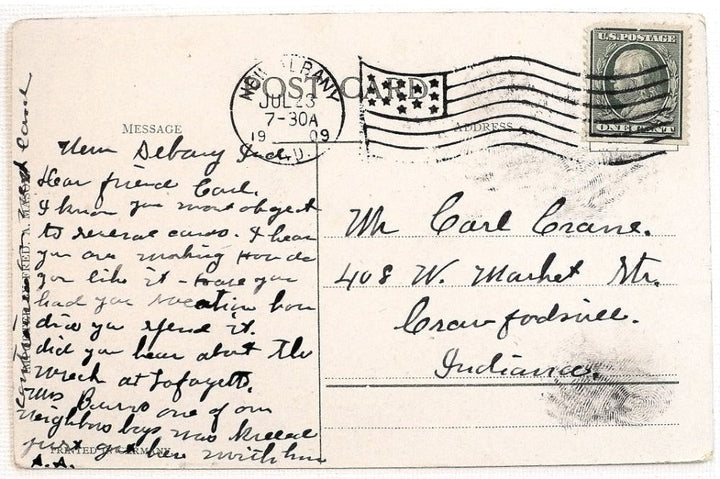 POST CARD
NEW ALBANY
JUL 23
7-30A
1909
IND.
U.S. POSTAGE
ONE CENT
MESSAGE
ADDRESS
New Albany Ind.
Dear friend Carl.
I know you most object
to several cards. I hear
you are working How do
you like it - have you
had you vacation how
did you spend it.
did you hear about the
wreck at Lafayette.
Burro one of our
neighbors boys was killed
just
A.A.
Mr Carl Crane.
408 W. Market Str.
Crawfodsvill.
Indiana.
PRINTED IN GERMANY